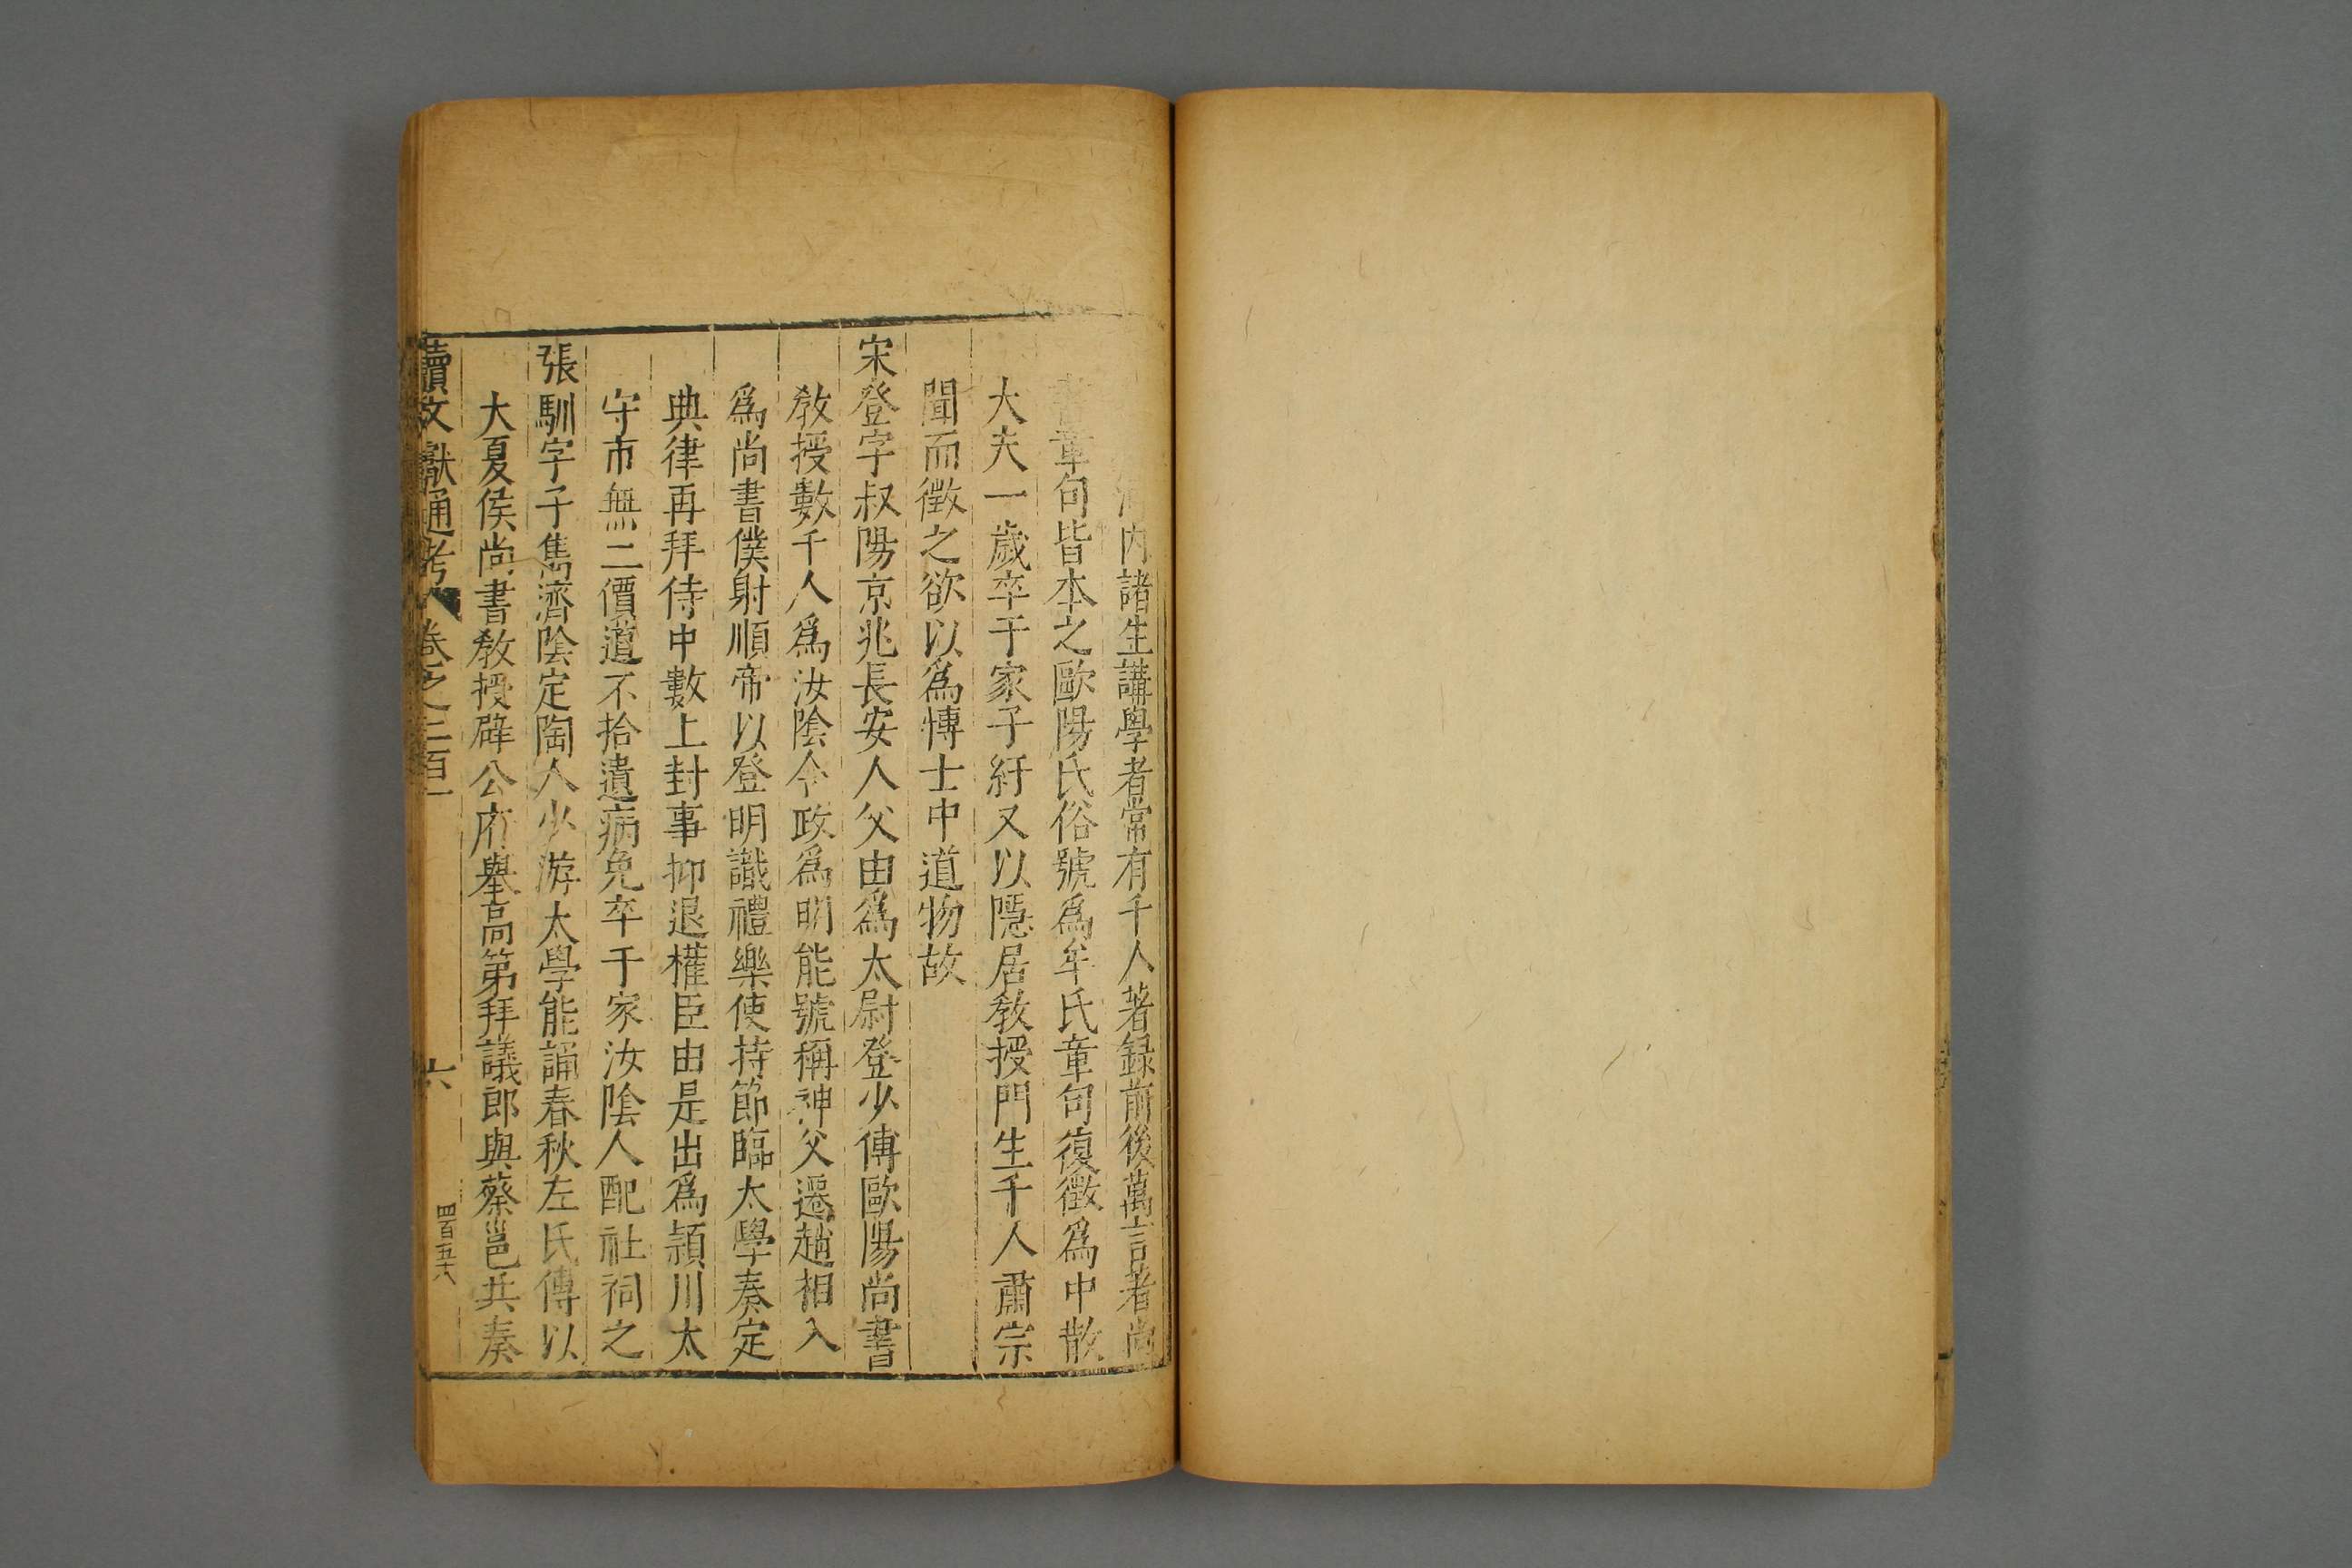 海内諸生講學者常有千人著録前後萬言著尚
書章句皆本之歐陽氏俗號爲牟氏章句復徵爲中散
大夫一歲卒于家子紆又以隱居教授門生千人肅宗
聞而徵之欲以爲愽士中道物故
宋登字叔陽京兆長安人父由爲太尉登少傳歐陽尚書
教授數千人爲汝陰令政爲明能號稱神父遷趙相入
爲尚書僕射順帝以登明識禮樂使持節臨太學奏定
典律再拜侍中數上封事抑退權臣由是出爲頴川太
守市無二價道不拾遺病免卒于家汝陰人配社祠之
張馴字子雋濟陰定陶人少游太學能誦春秋左氏傳以
大夏侯尚書教授辟公府舉高第拜議郎與蔡邕共奏
續文獻通考 卷之二百一
六
四百五十八